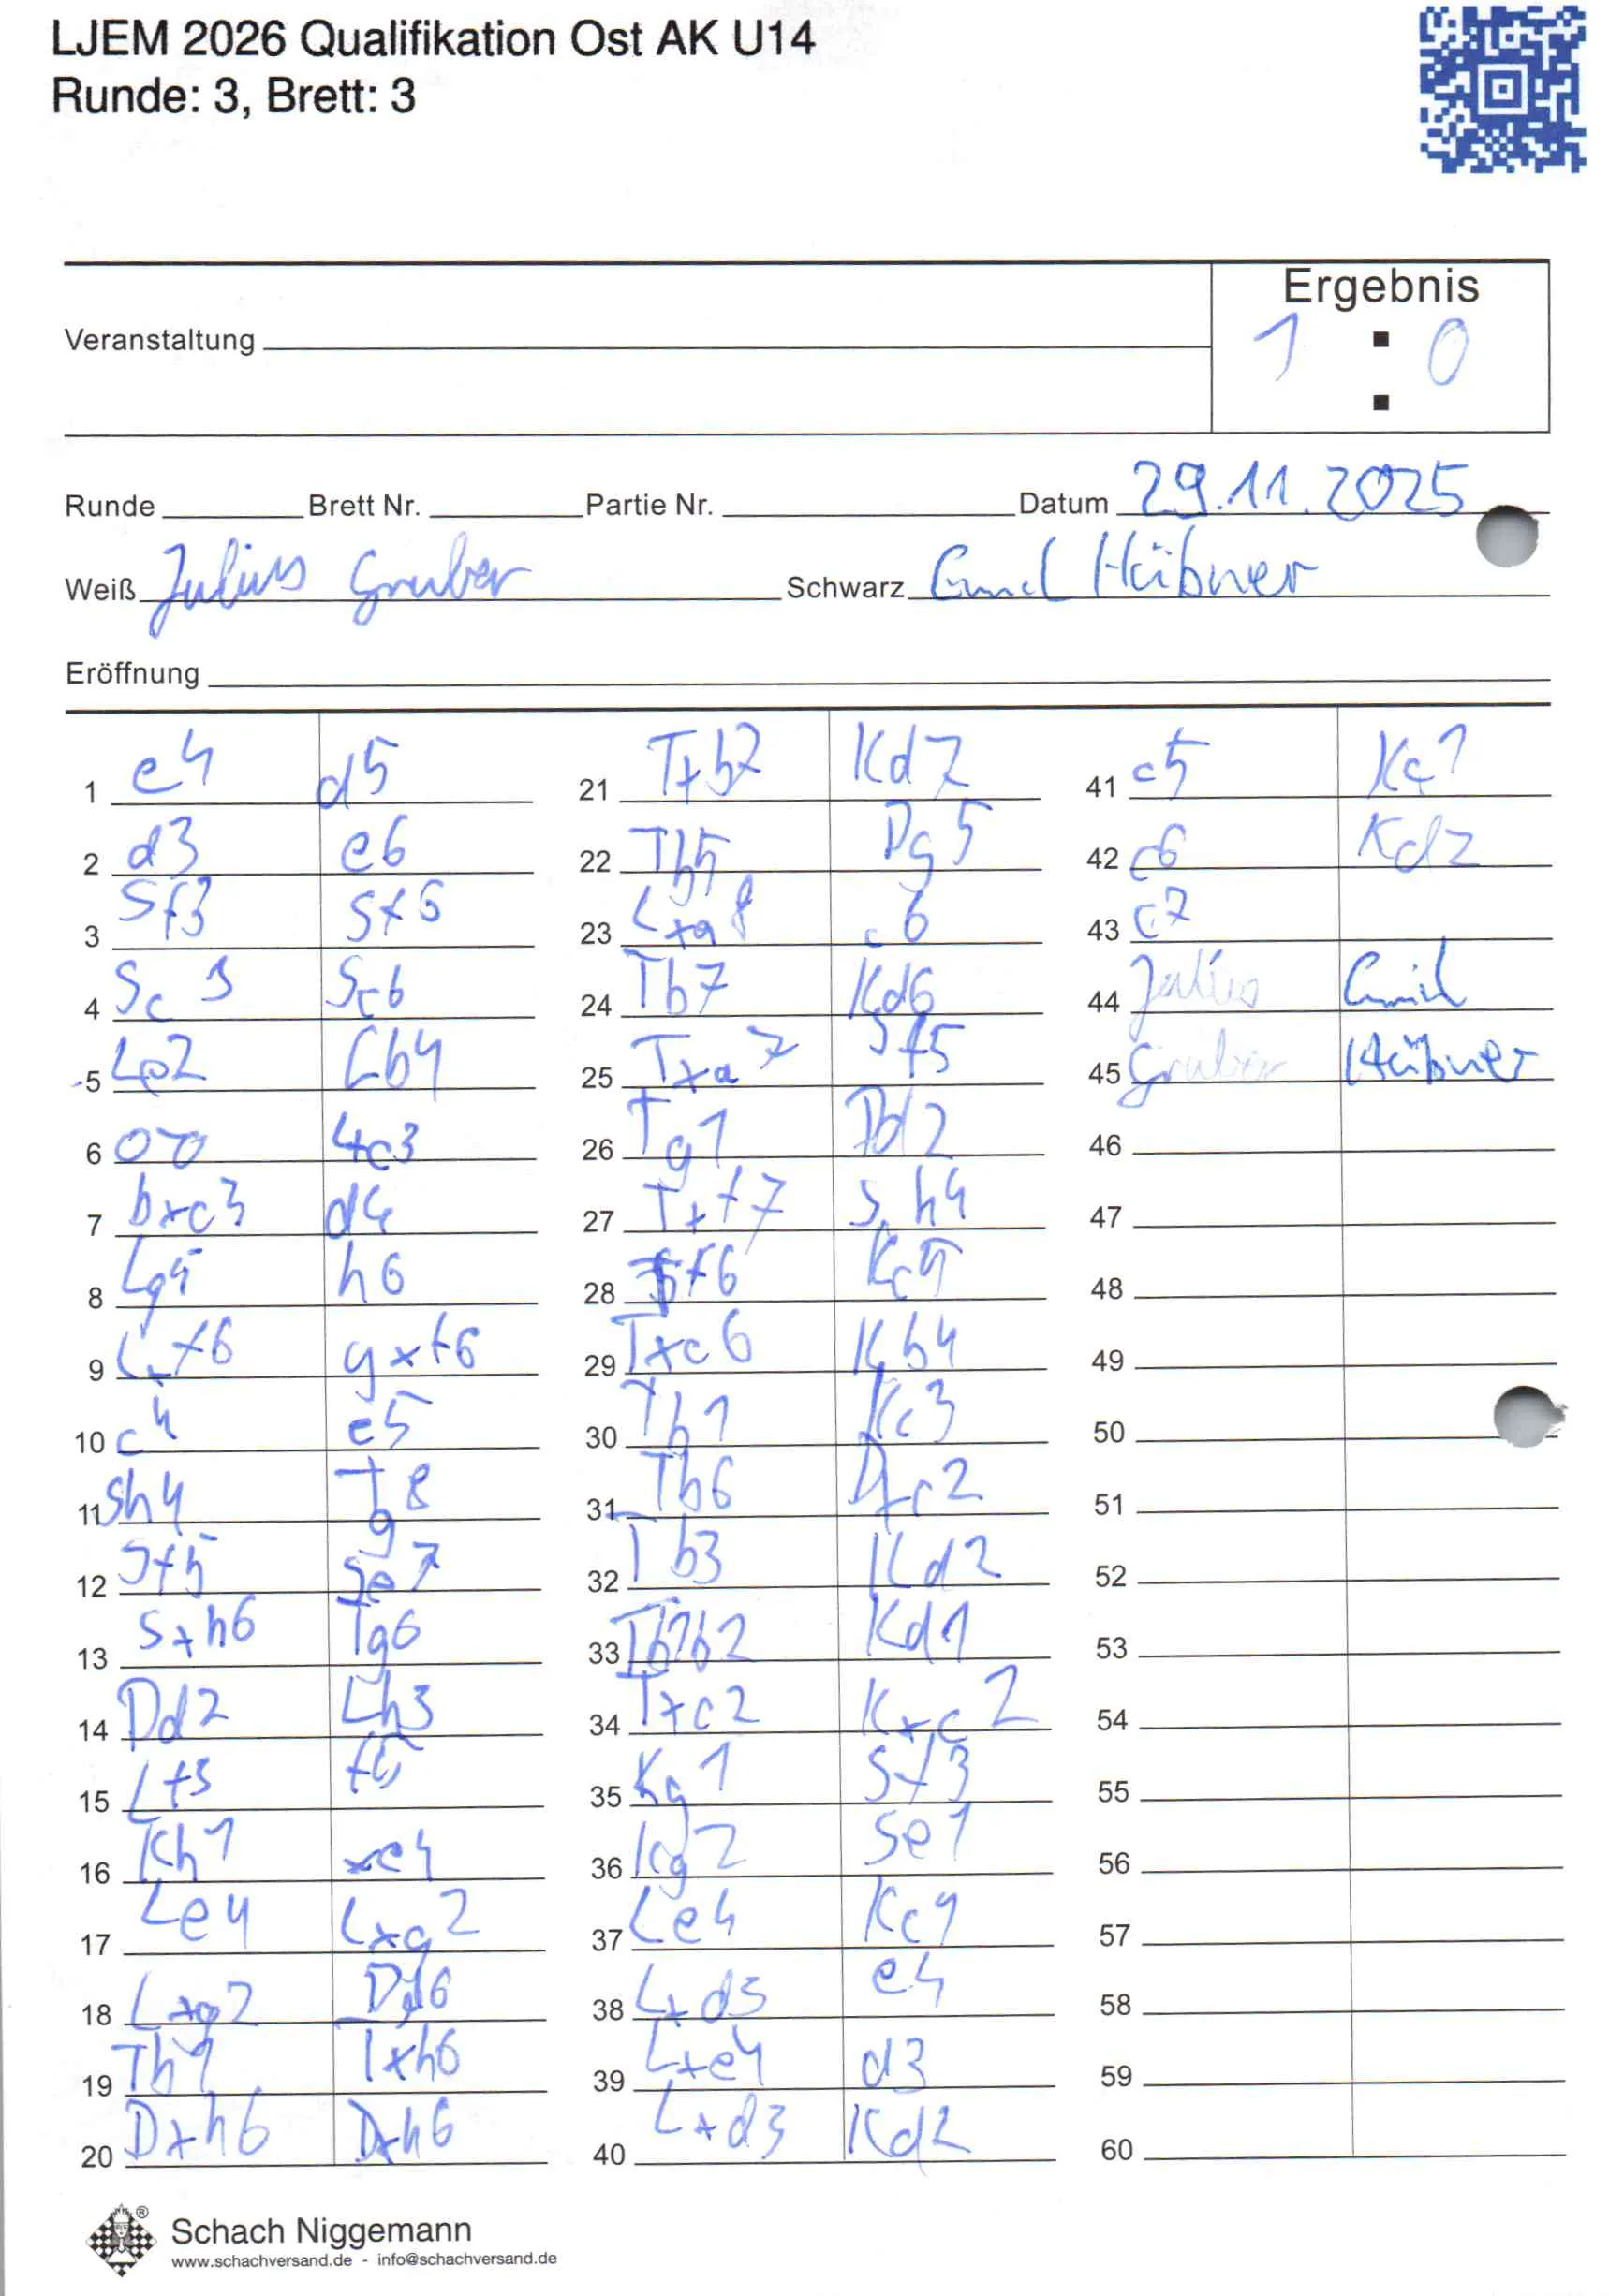 LJEM 2026 Qualifikation Ost AK U14
Runde: 3, Brett: 3
Ergebnis
1 : 0
Veranstaltung
Runde Brett Nr. Partie Nr. Datum 29.11.2025
Weiß Julius Gruber Schwarz Emil Hübner
Eröffnung
1 e4 d5
2 d3 e6
3 Sf3 Sf6
4 Sc3 Sc6
5 Le2 Lb4
6 0-0 Lxc3
7 bxc3 d4
8 Lg5 h6
9 Lxf6 gxf6
10 c4 e5
11 Sh4 Tg8
12 Sf5 Se7
13 Sxh6 Tg6
14 Dd2 Lh3
15 Lf3 f5
16 Kh1 xe4
17 Le4 Lxg2
18 Lxg2 Dd6
19 Tb1 Txh6
20 Dxh6 Dxh6
21 Txb7 Kd7
22 Tb5 Dg5
23 Lxa8 c6
24 Tb7 Kd6
25 Txa7 Sf5
26 Tg1 Dd2
27 Txf7 Sh4
28 Tf6 Kc5
29 Txc6 Kb4
30 Tb1 Kc3
31 Tb6 Dxc2
32 Tb3 Kd2
33 Tb2 Kd1
34 Txc2 Kxc2
35 Kg1 Sf3
36 Kg2 Se1
37 Le4 Kc1
38 Lxd3 e4
39 Lxe4 d3
40 Lxd3 Kd2
41 c5 Kc1
42 c6 Kd2
43 c7
44 Julius Emil
45 Gruber Hübner
46
47
48
49
50
51
52
53
54
55
56
57
58
59
60
Schach Niggemann
www.schachversand.de - info@schachversand.de